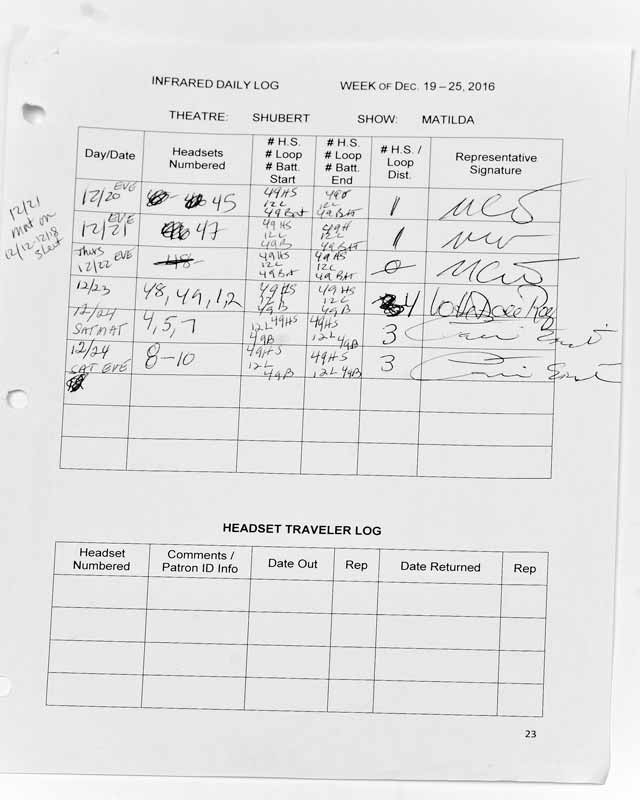 INFRARED DAILY LOG WEEK OF DEC. 19 – 25, 2016
THEATRE: SHUBERT SHOW: MATILDA
Day/Date
Headsets
Numbered
# H.S.
# Loop
# Batt.
Start
# H.S.
# Loop
# Batt.
End
# H.S. /
Loop
Dist.
Representative
Signature
12/21
mat on
12/12-12/18
sheet
12/20 EVE
45
49HS
12L
49Bat
12L
49Bat
1
12/21 EVE
47
49HS
12L
49B
49H
12L
49Bat
1
Thurs
12/22 EVE
48
49HS
12L
49Bat
49HS
12L
49Bat
0
12/23
48, 49, 1, 2
49HS
12L
49B
49HS
12L
49B
4
12/24
SAT MAT
4, 5, 7
12L 49HS
49B
49HS
12L
49B
3
12/24
SAT EVE
8-10
49HS
12L
49B
49HS
12L 49B
3
HEADSET TRAVELER LOG
Headset
Numbered
Comments /
Patron ID Info
Date Out
Rep
Date Returned
Rep
23